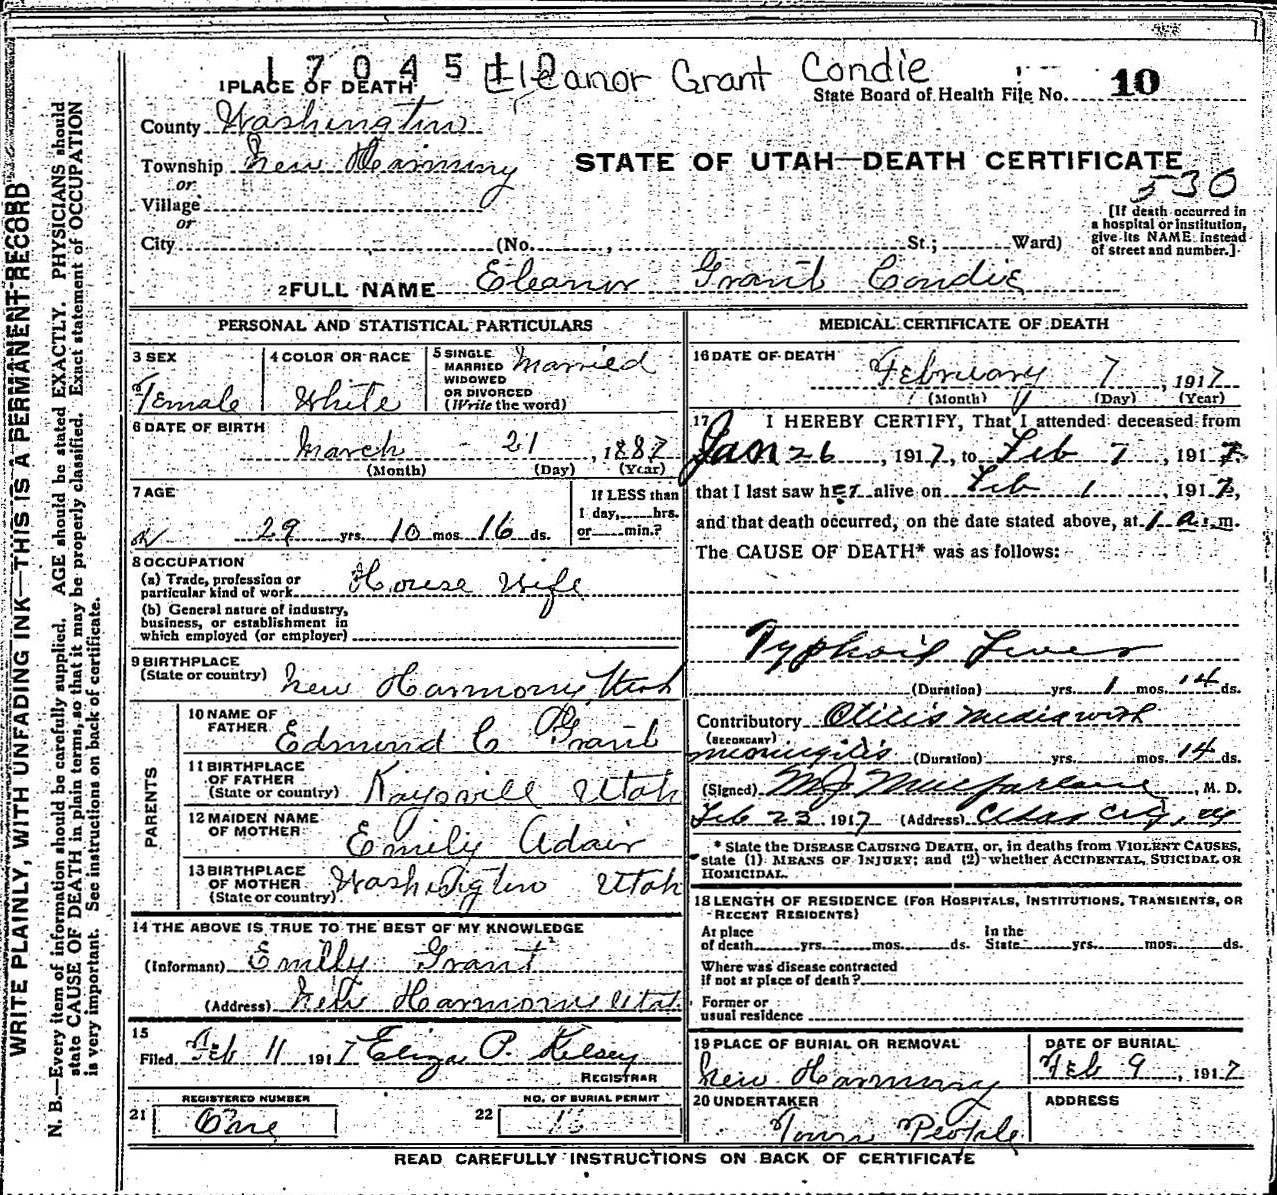 1704510 Eleanor Grant Condie
1 PLACE OF DEATH
State Board of Health File No. 10
County Washington
Township New Harmony
STATE OF UTAH—DEATH CERTIFICATE
530
or
Village
or
City (No. , St.; Ward)
[If death occurred in
a hospital or institution,
give its NAME instead
of street and number.]
2 FULL NAME Eleanor Grant Condie
PERSONAL AND STATISTICAL PARTICULARS
3 SEX
Female
4 COLOR OR RACE
White
5 SINGLE
MARRIED
WIDOWED
OR DIVORCED
(Write the word)
Married
6 DATE OF BIRTH
March 21, 1887
(Month) (Day) (Year)
7 AGE
29 yrs. 10 mos. 16 ds.
If LESS than
1 day, hrs.
or min.?
8 OCCUPATION
(a) Trade, profession or
particular kind of work House Wife
(b) General nature of industry,
business, or establishment in
which employed (or employer)
9 BIRTHPLACE
(State or country) New Harmony Utah
PARENTS
10 NAME OF
FATHER
Edmond C Grant
11 BIRTHPLACE
OF FATHER
(State or country) Kaysvill Utah
12 MAIDEN NAME
OF MOTHER
Emily Adair
13 BIRTHPLACE
OF MOTHER
(State or country) Washington Utah
14 THE ABOVE IS TRUE TO THE BEST OF MY KNOWLEDGE
(Informant) Emilly Grant
(Address) New Harmony Utah
15
Filed Feb 11 1917 Eliza P. Kelsey
REGISTRAR
21 REGISTERED NUMBER
One
22 NO. OF BURIAL PERMIT
MEDICAL CERTIFICATE OF DEATH
16 DATE OF DEATH
February 7, 1917
(Month) (Day) (Year)
17 I HEREBY CERTIFY, That I attended deceased from
Jan 26, 1917, to Feb 7, 1917.
that I last saw her alive on Feb 1, 1917,
and that death occurred, on the date stated above, at 1 a.m.
The CAUSE OF DEATH* was as follows:
Typhoid Fever
(Duration) yrs. 1 mos. 14 ds.
Contributory Otitis Media with
(SECONDARY)
meningitis (Duration) yrs. mos. 14 ds.
(Signed) M J Macfarlane, M. D.
Feb 23 1917 (Address) Cedar City,
* State the DISEASE CAUSING DEATH, or, in deaths from VIOLENT CAUSES,
state (1) MEANS OF INJURY; and (2) whether ACCIDENTAL, SUICIDAL OR
HOMICIDAL.
18 LENGTH OF RESIDENCE (FOR HOSPITALS, INSTITUTIONS, TRANSIENTS, OR
RECENT RESIDENTS)
At place
of death yrs. mos. ds.
In the
State yrs. mos. ds.
Where was disease contracted
if not at place of death?
Former or
usual residence
19 PLACE OF BURIAL OR REMOVAL
New Harmony
DATE OF BURIAL
Feb 9, 1917
20 UNDERTAKER
Town People
ADDRESS
READ CAREFULLY INSTRUCTIONS ON BACK OF CERTIFICATE
WRITE PLAINLY, WITH UNFADING INK—THIS IS A PERMANENT RECORD
N. B.—Every item of information should be carefully supplied. AGE should be stated EXACTLY. PHYSICIANS should
state CAUSE OF DEATH in plain terms, so that it may be properly classified. Exact statement of OCCUPATION
is very important. See instructions on back of certificate.